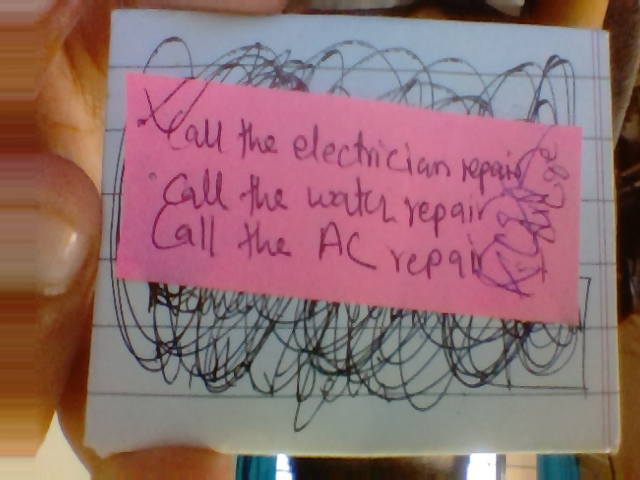 Call the electrician repair
Call the watch repair
Call the AC repair